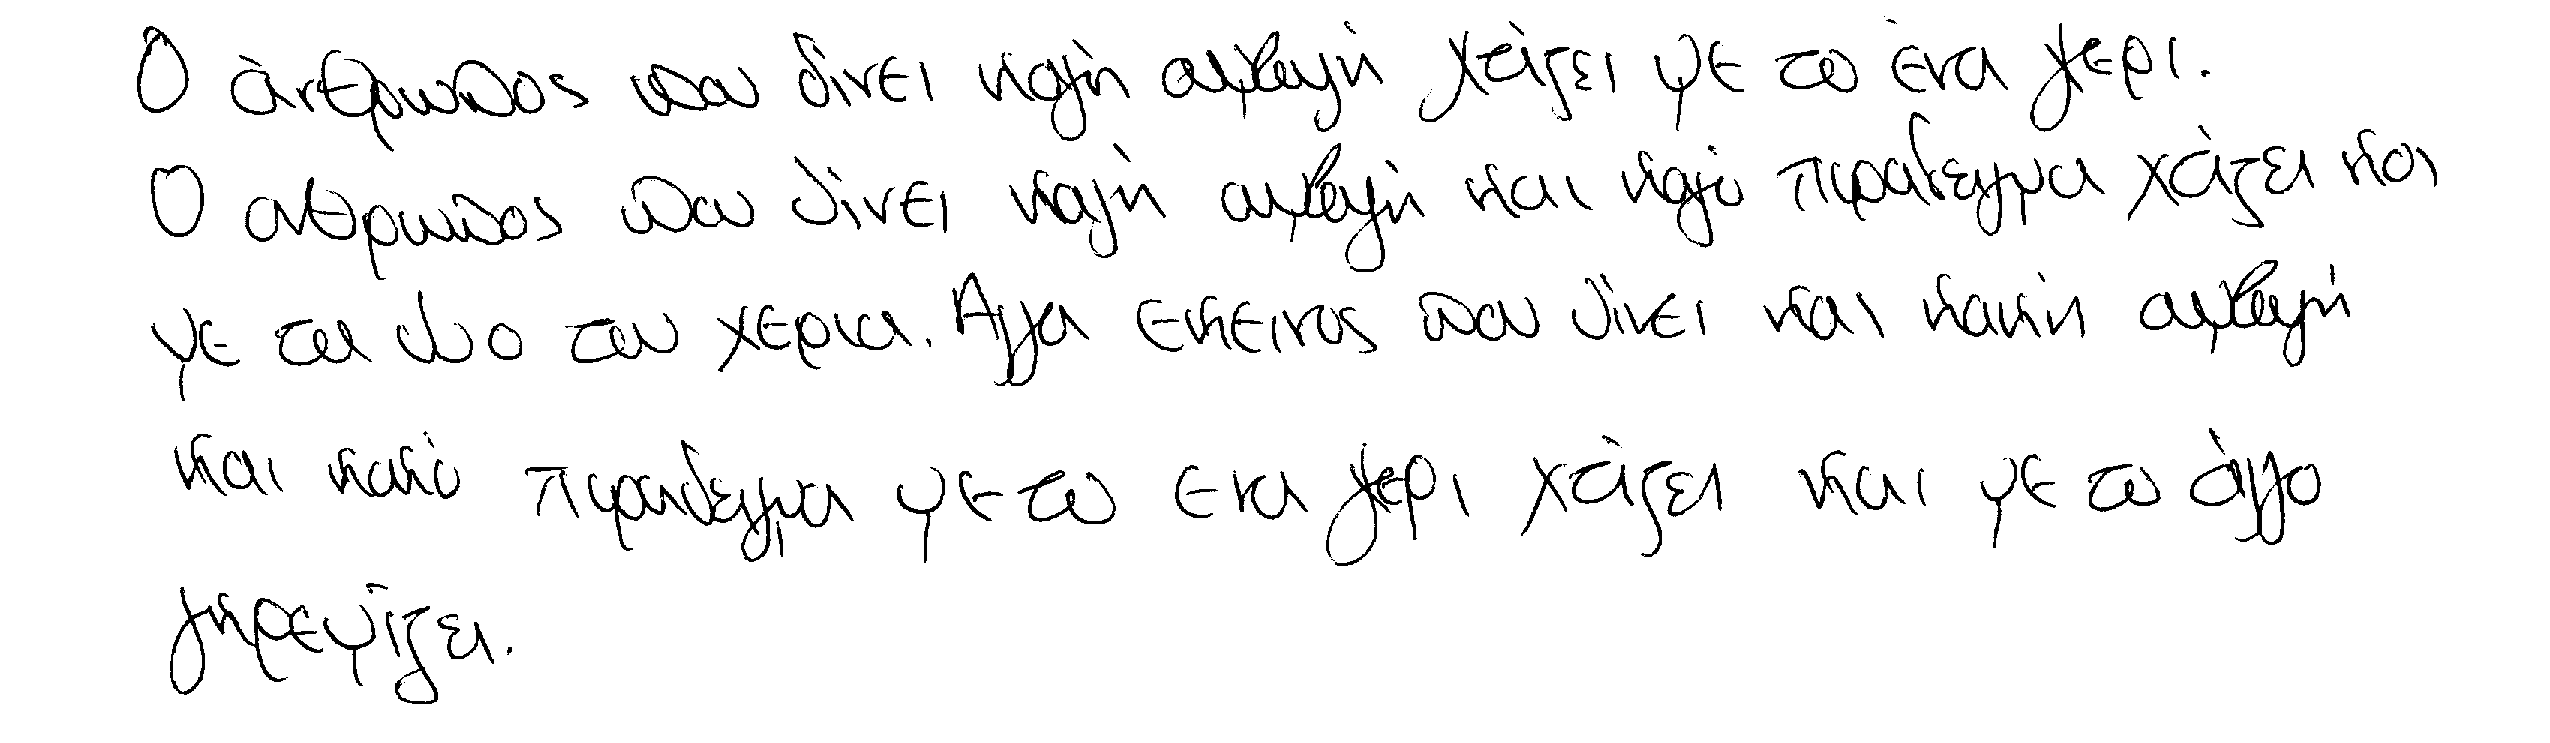 Ο άνθρωπος που δίνει καλή συμβουλή χτίζει με το ένα χέρι.
Ο ανθρωπος που δίνει καλή συμβουλή και καλό παραδειγμα χτίζει και
με τα δυο του χερια. Αλλα εκεινος που δίνει και κακή συμβουλή
και κακό παραδειγμα με το ενα χερι χτίζει και με το άλλο
γκρεμίζει.